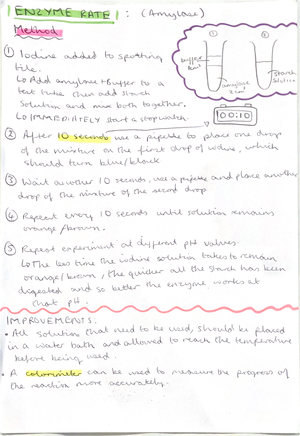 ENZYME RATE : (Amylase)
Method
① Iodine added to spotting
tile.
↳ Add amylase + Buffer to a
test tube then add starch
Solution and mix both together.
↳ IMMEDIATELY start a stopwatch.
① ②
buffer
amylase
starch
solution
00:10
② After 10 seconds use a pipette to place one drop
of the mixture on the first drop of iodine, which
should turn blue/black
③ Wait another 10 seconds, use a pipette and place another
drop of the mixture of the second drop.
④ Repeat every 10 seconds until solution remains
orange/brown.
⑤ Repeat experiment at different pH values.
↳ The less time the iodine solution takes to remain
orange/brown, the quicker all the starch has been
digested and so better the enzyme works at
that pH.
IMPROVEMENTS:
• All solution that need to be used, should be placed
in a water bath and allowed to reach the temperature
before being used.
• A colorimeter can be used to measure the progress of
the reaction more accurately.